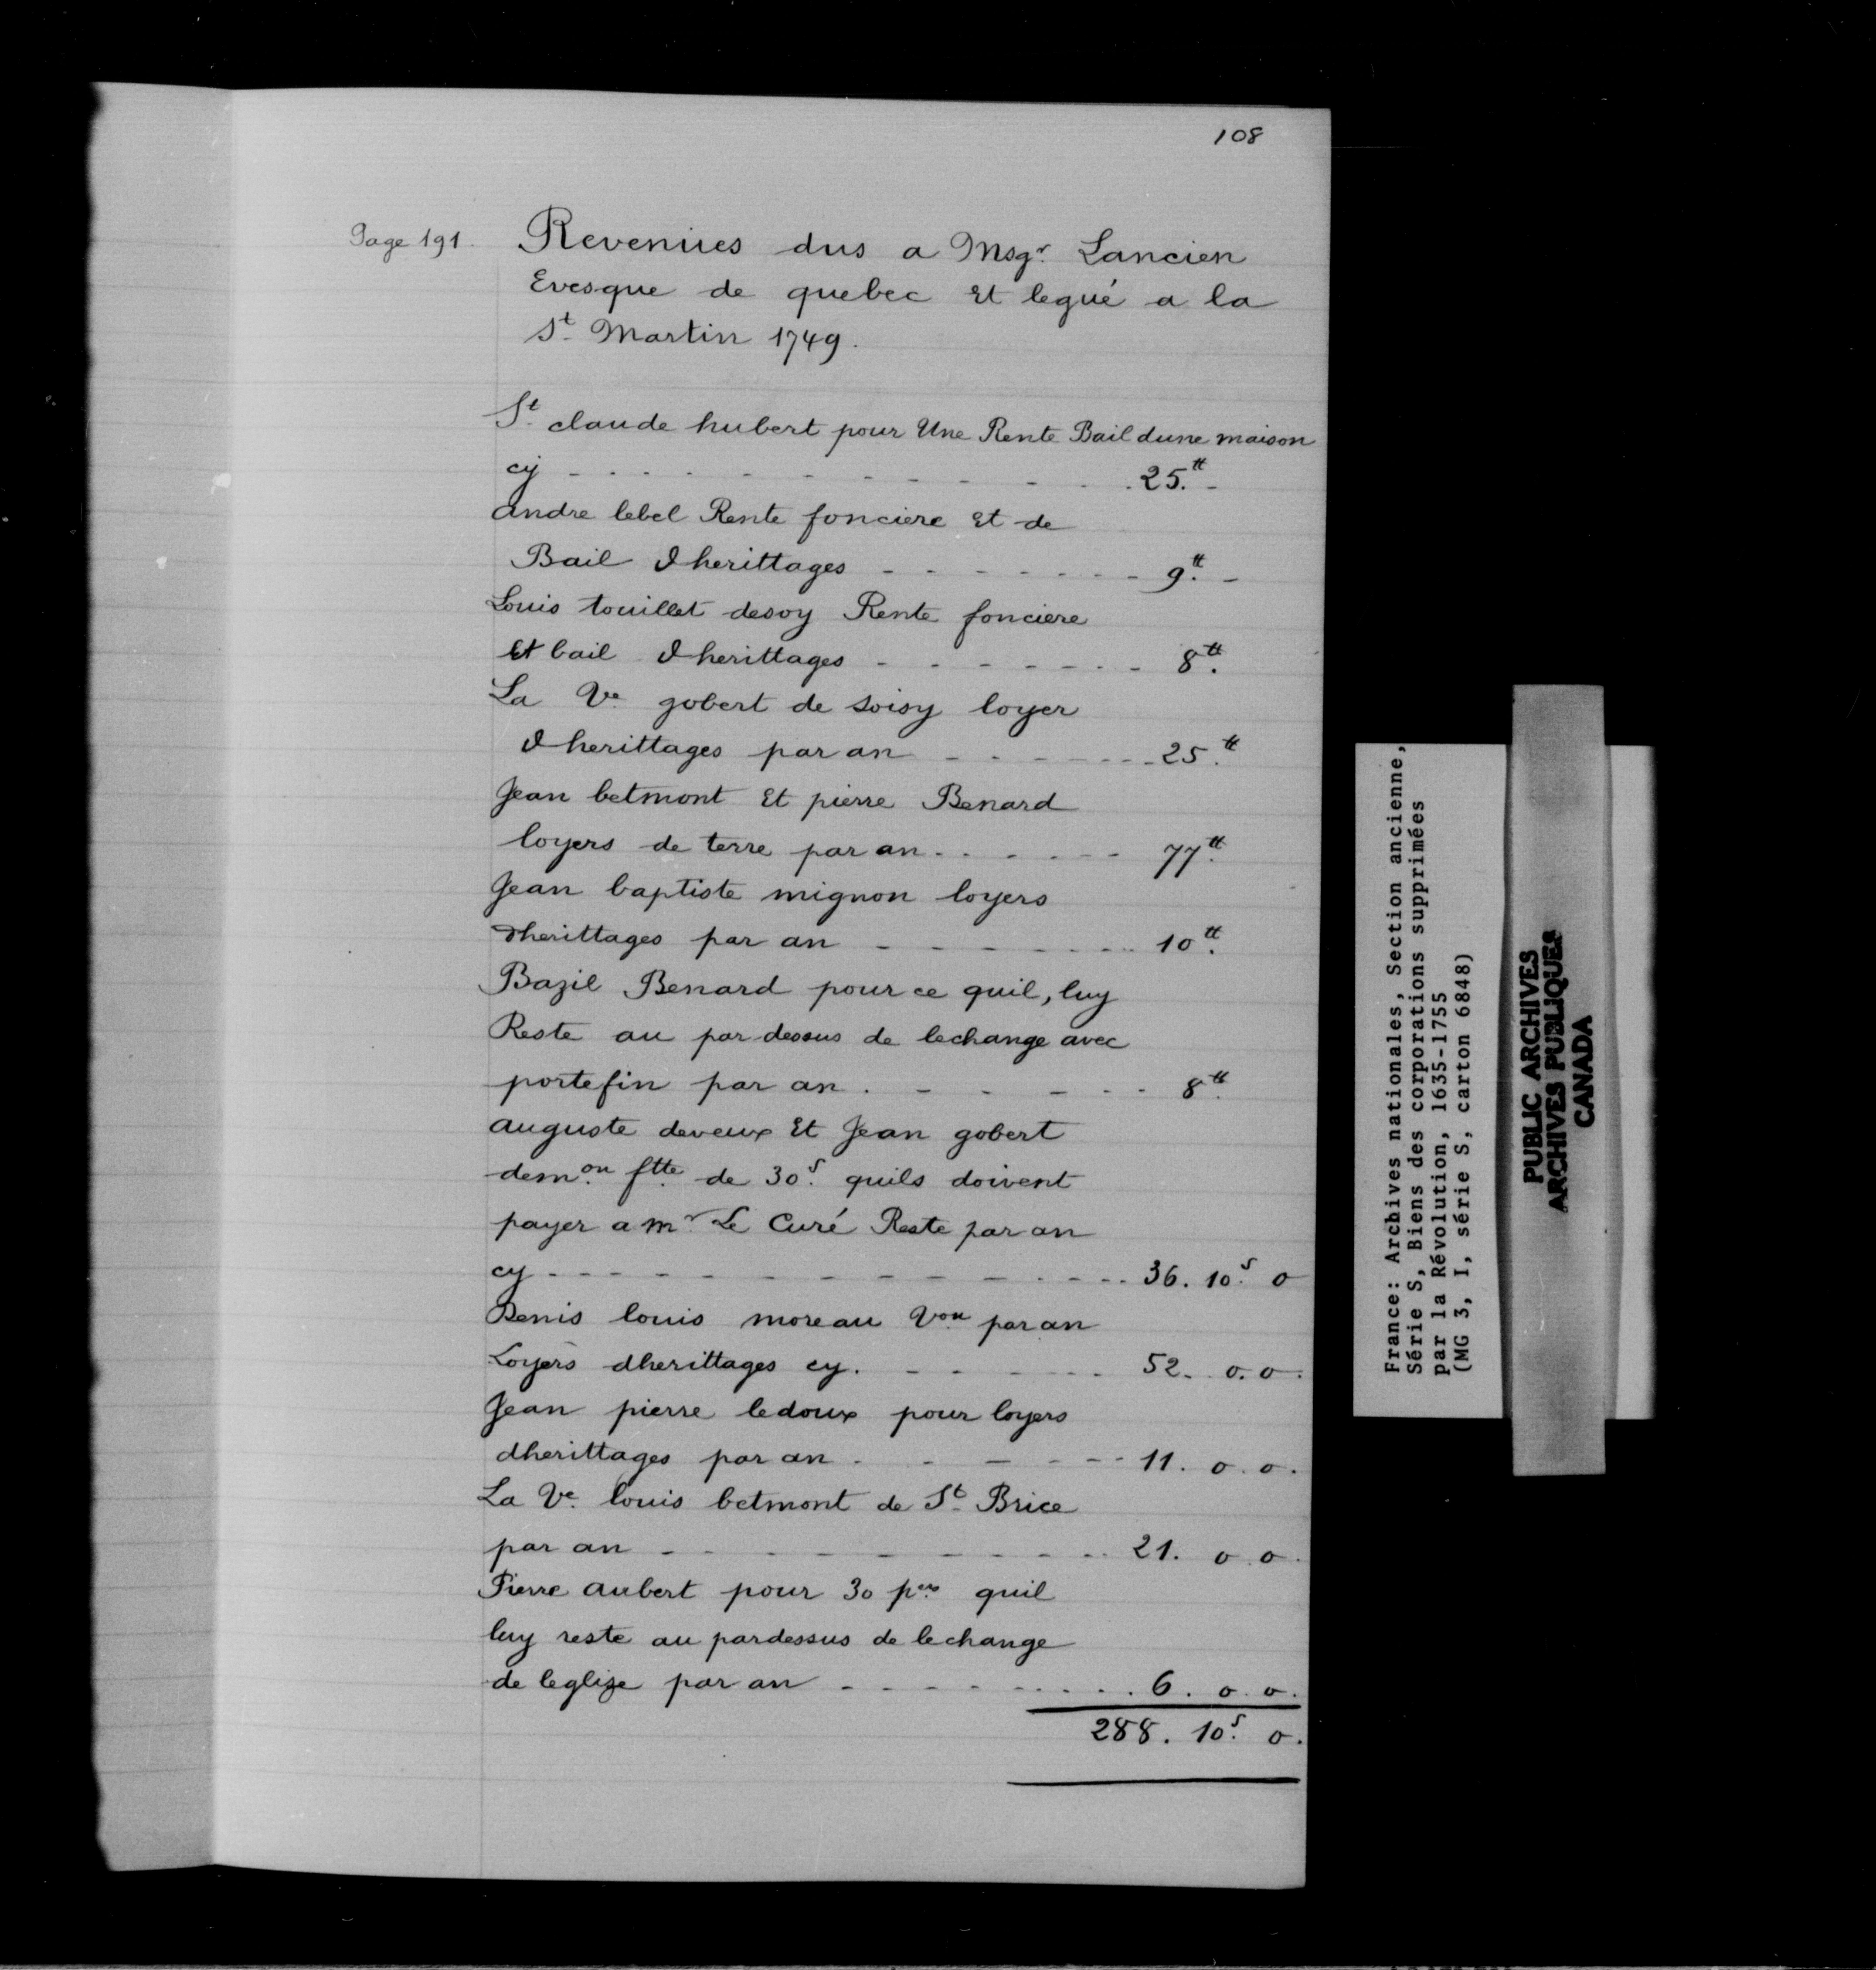 108
Page 191. Revenues dus a Msgr. Lancien
Evesque de quebec Et legué a la
St Martin 1749.
St claude hubert pour Une Rente Bail dune maison
cij - - - - - - - - - - 25.tt -
andre lebel Rente fonciere Et de
Bail Dherittages - - - - - - - 9.tt -
Louis touillet desoy Rente fonciere
Et bail Dherittages - - - - - - - 8.tt
La Ve gobert de soisy loyer
Dherittages par an - - - - - - - 25.tt
Jean betmont Et pierre Benard
loyers de terre par an - - - - - - 77.tt
Jean baptiste mignon loyers
Dherittages par an - - - - - - - 10.tt
Bazil Benard pour ce quil, luy
Reste au par dessus de lechange avec
portefin par an - - - - - - 8.tt
auguste deveux Et Jean gobert
dem.on ftte de 30.s quils doivent
payer a mr. Le Curé Reste par an
cy - - - - - - - - - - - - 36. 10.s o
Denis louis moreau Von par an
Loyers dherittages cy. - - - - - - 52. o. o.
Jean pierre ledoux pour loyers
dherittages par an - - - - - - 11. o. o.
La Ve. louis betmont de St Brice
par an - - - - - - - - - - 21. o. o.
Pierre aubert pour 30 pers quil
luy reste au pardessus de lechange
de leglize par an - - - - - - - - 6. o. o.
288. 10.s o.
France: Archives nationales, Section ancienne,
Série S, Biens des corporations supprimées
par la Révolution, 1635-1755
(MG 3, I, série S, carton 6848)
PUBLIC ARCHIVES
ARCHIVES PUBLIQUES
CANADA